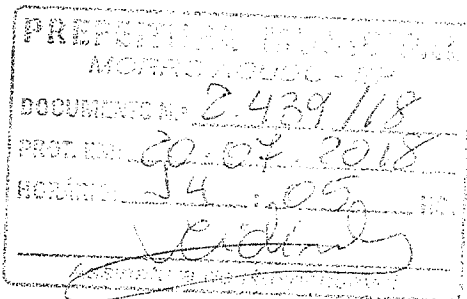 PREFEITURA MUNICIPAL
MORRO AGUDO - SP
DOCUMENTO N.º 2.439/18
PROT. EM: 20.07.2018
HORÁRIO: 14:05 HS.